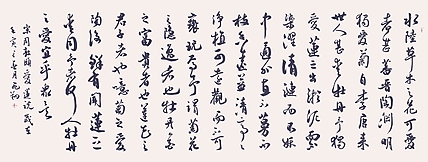 水陸草木之花可愛
者甚蕃晉陶淵明
獨愛菊自李唐來
世人甚愛牡丹予獨
愛蓮之出淤泥而不
染濯清漣而不妖
中通外直不蔓不
枝香遠益清亭亭
淨植可遠觀而不可
褻玩焉予謂菊花
之隱逸者也牡丹花
之富貴者也蓮花之
君子者也噫菊之愛
陶後鮮有聞蓮之
愛同予者何人牡丹
之愛宜乎眾矣
宋周敦頤愛蓮說
壬寅